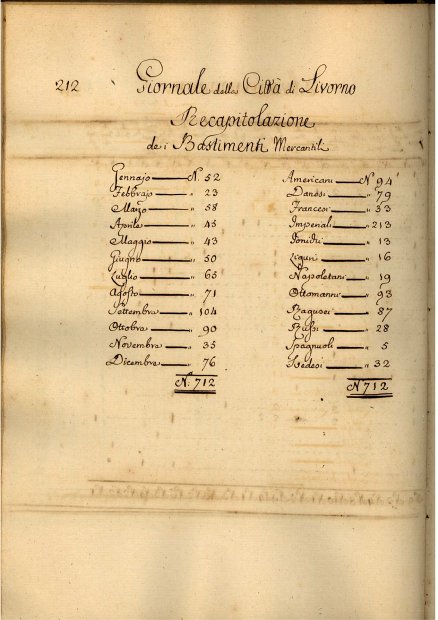 212
Giornale della Città di Livorno
Recapitolazione
dei Bastimenti Mercantili
Gennajo — N. 52
Febbrajo — " 23
Marzo — " 58
Aprile — " 45
Maggio — " 43
Giugno — " 50
Luglio — " 65
Agosto — " 71
Settembre — " 104
Ottobre — " 90
Novembre — " 35
Dicembre — " 76
N. 712
Americani — N. 94
Danesi — " 79
Francesi — " 33
Imperiali — " 213
Jonidi — " 13
Liguri — " 16
Napoletani — " 19
Ottomanni — " 93
Ragusei — " 87
Russi — " 28
Spagnuoli — " 5
Svedesi — " 32
N. 712